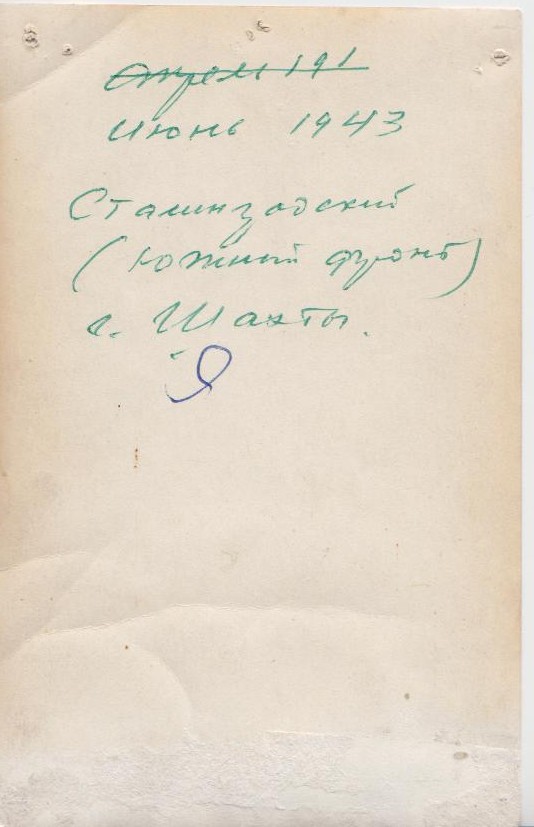 Апрель 191
Июнь 1943
Сталинградский
(Южный фронт)
г. Шахты.
Я